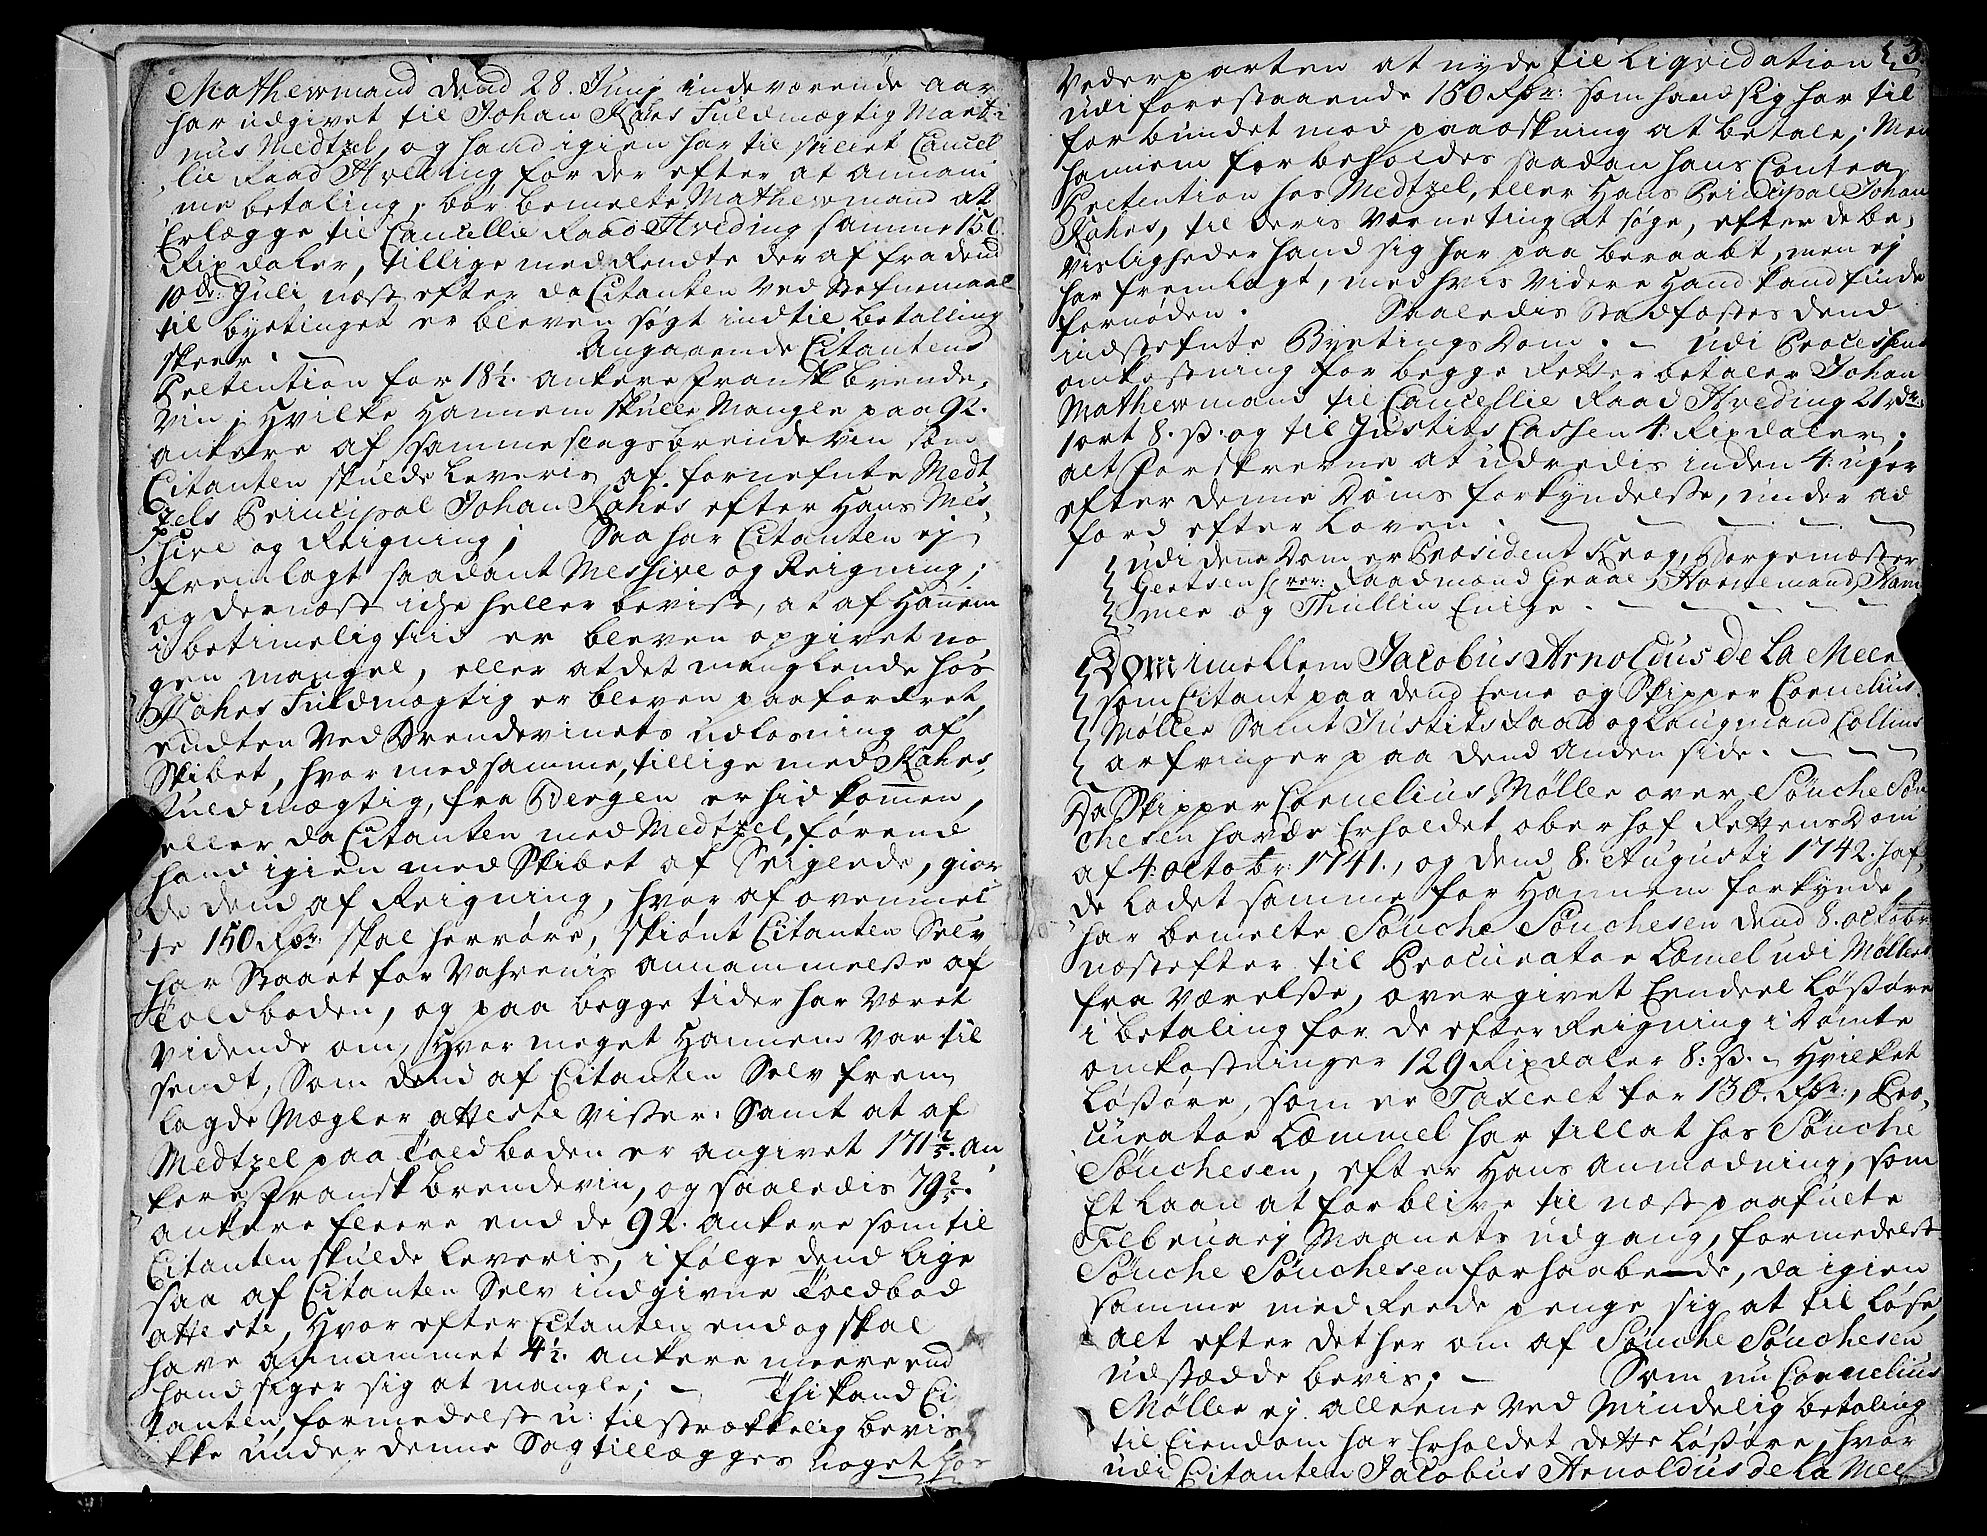 Mathewmand dend 28. Junij indeværende aar
har udgivet til Johan Kahrs Fuldmægtig Marti
nus Medtzel, og hand igien har tilstillet Cancel
lie Raad Hveding for der efter at annam
me betaling, bør bemelte Mathewmand at
Erlægge til Cancellie Raad Hveding samme 150.
Rixdaler, tillige med Rendte der af fra dend
10de: Juli, næst efter da Citanten ved Stefnemaal
til byetinget er bleven søgt indtil betalling
skeer. Angaaende Citantens
Pretention for 18½. ankere fransk brende-
viin, Hvilke Hannem skulle Mangle paa 92.
ankere af samme slags brendeviin som
Citanten skulde leveris af fornefnte Medt
zels Principal Johan Kahrs efter Hans Mis-
sive og Reigning; Saa har Citanten ej
fremlagt saadant Missive og Reigning;
og dernæst icke heller bevist, at af Hannem
i betimelig tiid er bleven opgivet no
gen mangel, eller at det manglende hos
Kahrs Fuldmægtig er bleven paafordret
endten ved Brendevinets udlosning af
Skibet, hvor med samme, tillige med Kahrs
Fuldmægtig, fra Bergen er hid kommen,
eller da Citanten med Medtzel, førend
hand igien med Skibet af Seiglede, gior
de dend af Reigning, hvor af ovenmel
te 150 Rdr: skal herrøre, skiønt Citanten Selv
har Staaet for Vahrenis annammelse af
Toldboden, og paa begge tider har været
vidende om, Hvor meget Hannem var til
sendt, Som dend af Citanten Selv frem
lagde Mægler atteste viiser. Samt at af
Medtzel paa Toldboden er angivet 171⅖. an
kere fransk brendeviin, og saaledis 79⅖.
ankere fleere end de 92. ankere som til
Citanten skulde leveris, i følge dend lige
saa af Citanten Selv indgivne Toldbod
atteste, Hvor efter Citanten endog skal
have annammet 4½. ankere meere end
hand siger sig at mangle; - Thi kand Ci
tanten, formedelst u-tilstrækkelig beviis
ikke under denne Sag tillægges noget hos
3.
Vederparten at nyde til Liqvidation
udi forestaaende 150 Rdr: som hand sig har til
forbundet mod paaæskning at betale; Men
hannem forbeholdes saadan hans Contra
Pretention hos Medtzel, eller Hans Principal Johan
Kahrs, til deris Værneting at søge, efter de be-
visligheder hand sig har paa beraabt, men ej
har fremlagt, med hvis videre Hand kand finde
fornøden. Saaledis Stadfæstes dend
indstefnte Byetings Dom. - udi Processens
omkostning for begge Retter betaler Johan
Mathewmand til Cancellie Raad Hveding 21 rdr:
1 ort 8. ß. og til Justits Cassen 4. Rixdaler;
alt forskrevne at udredis inden 4: uger
efter denne Doms forkyndelse, under ad
ferd efter Loven.
udi denne Dom er Præsident Krog, Borgemester
Gertsen hrr: Raadmand Graae, Hornemand, Ham
mer og Thullin Enige.
Dom imellem Jacobus Arnoldus de La Meer
som Citant paa dend Eene og Skipper Cornelius
Møller Samt Justits Raad og Laugmand Collins
arfvinger paa dend anden side.
Da Skipper Cornelius Møller over Sønche Søn
chesen havde Erholdet oberhof Rettens Dom
af 4: octobr: 1741., og dend 8. Augusti 1742. haf
de ladet samme for Hannem forkynde,
har bemelte Sønche Sønchesen dend 8. octobr:
næstefter til Procurator Læmel udi Møllers
fra værelse, overgivet Eendeel løsøre
i betaling for de efter Reigning i Dømte
omkostninger 129 Rixdaler 8: ß. - Hvilket
løsøre, som er Taxeret for 130. Rdr:, Pro-
curator Læmmel har tilladt hos Sønche
Sønchesen, efter Hans anmodning, som
Et Laan at forblive til næst paafulte
Februarij Maanets udgang, formedelst
Sønche Sønchesen forhaabede, da igien
samme med Reede penge sig at til løse,
alt efter det her om af Sønche Sønchesen
udstædde beviis; - Som nu Cornelius
Møller ej alleene ved Mindelig betaling
til Eiendom har Erholdet dette løsøre, hvor
udi Citanten Jacobus Arnoldus de La Meer